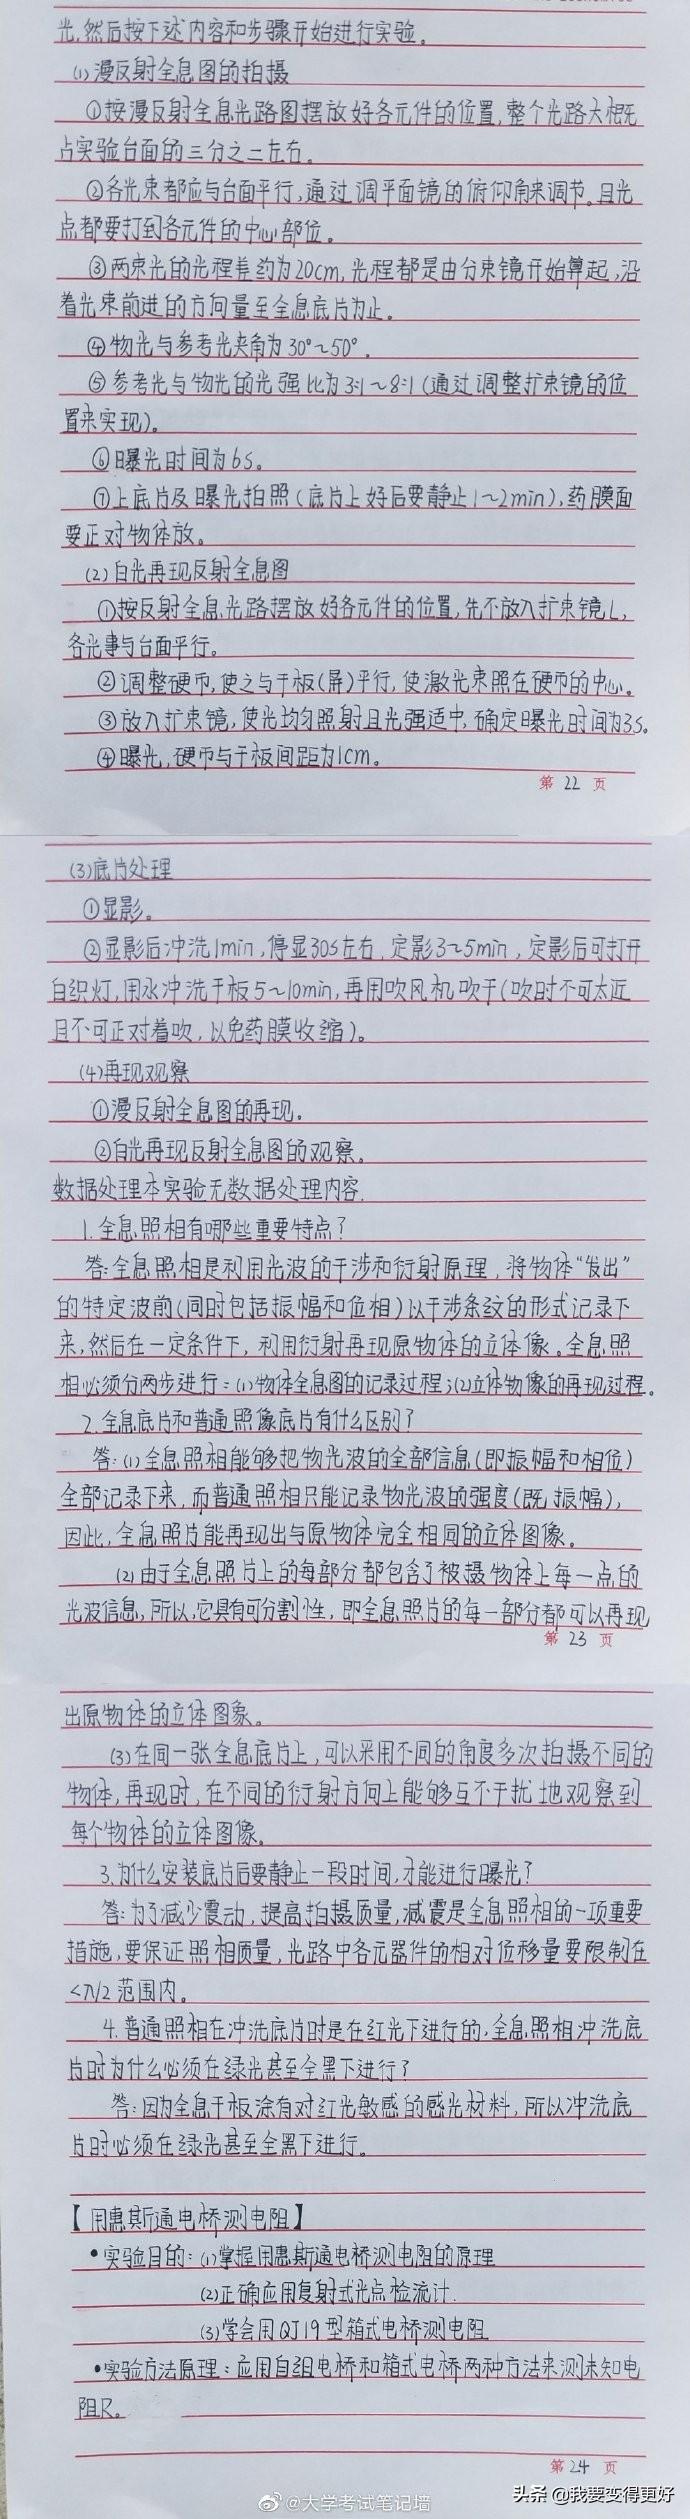 光,然后按下述内容和步骤开始进行实验。
(1)漫反射全息图的拍摄
①按漫反射全息光路图摆放好各元件的位置,整个光路大概
占实验台面的三分之二左右。
②各光束都应与台面平行,通过调平面镜的俯仰角来调节。且光
点都要打到各元件的中心部位。
③两束光的光程差约为20cm,光程都是由分束镜开始算起,沿
着光束前进的方向量至全息底片为止。
④物光与参考光夹角为30°~50°.
⑤参考光与物光的光强比为3:1~8:1(通过调整扩束镜的位
置来实现)。
⑥曝光时间为6s。
⑦上底片及曝光拍照(底片上好后要静止1~2min),药膜面
要正对物体放。
(2)白光再现反射全息图
①按反射全息光路摆放好各元件的位置,先不放入扩束镜L,
各光事与台面平行。
②调整硬币,使之与干板(屏)平行,使激光束照在硬币的中心。
③放入扩束镜,使光均匀照射且光强适中,确定曝光时间为3s。
④曝光,硬币与干板间距为1cm。
第 22 页
(3)底片处理
①显影。
②显影后冲洗1min,停显30s左右,定影3~5min,定影后可打开
白织灯,用水冲洗干板5~10min,再用吹风机吹干(吹时不可太近
且不可正对着吹,以免药膜收缩)。
(4)再现观察
①漫反射全息图的再现.
②白光再现反射全息图的观察。
数据处理本实验无数据处理内容.
1.全息照相有哪些重要特点?
答:全息照相是利用光波的干涉和衍射原理,将物体“发出”
的特定波前(同时包括振幅和位相)以干涉条纹的形式记录下
来,然后在一定条件下,利用衍射再现原物体的立体像。全息照
相必须分两步进行:(1)物体全息图的记录过程;(2)立体物像的再现过程。
2.全息底片和普通照像底片有什么区别?
答:(1)全息照相能够把物光波的全部信息(即振幅和相位)
全部记录下来,而普通照相只能记录物光波的强度(既振幅),
因此,全息照片能再现出与原物体完全相同的立体图像。
(2)由于全息照片上的每部分都包含了被摄物体上每一点的
光波信息,所以,它具有可分割性,即全息照片的每一部分都可以再现
第 23 页
出原物体的立体图象。
(3)在同一张全息底片上,可以采用不同的角度多次拍摄不同的
物体,再现时,在不同的衍射方向上能够互不干扰地观察到
每个物体的立体图像。
3.为什么安装底片后要静止一段时间,才能进行曝光?
答:为了减少震动,提高拍摄质量,减震是全息照相的一项重要
措施,要保证照相质量,光路中各元器件的相对位移量要限制在
<λ/2范围内。
4.普通照相在冲洗底片时是在红光下进行的,全息照相冲洗底
片时为什么必须在绿光甚至全黑下进行?
答:因为全息干板涂有对红光敏感的感光材料,所以冲洗底
片时必须在绿光甚至全黑下进行。
【用惠斯通电桥测电阻】
•实验目的:(1)掌握用惠斯通电桥测电阻的原理
(2)正确应用复射式光点检流计.
(3)学会用QJ19型箱式电桥测电阻
•实验方法原理:应用自组电桥和箱式电桥两种方法来测未知电
阻R。
第 24 页
@大学考试笔记墙
头条 @我要变得更好